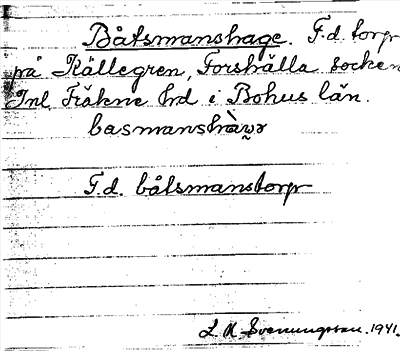 Båtsmanshage. F.d. torp
på Källegren, Forshälla socken
Inl. Fräkne hrd i Bohus län.
F.d. båtsmanstorp
Svenungsson. 1941.